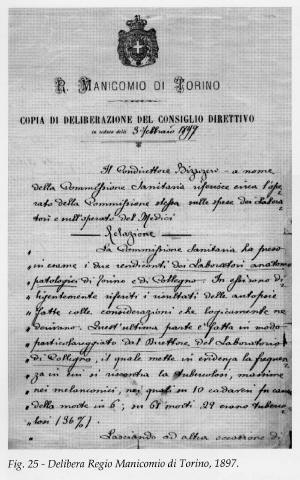 R. MANICOMIO DI TORINO
COPIA DI DELIBERAZIONE DEL CONSIGLIO DIRETTIVO
in seduta delli 3 Febbraio 1897
Il Condirettore Bizzozero - a nome
della Commissione Sanitaria riferisce circa l'ope
rato della Commissione stessa sulle spese dei Labora
tori e sull'operato dei Medici
Relazione
La Commissione Sanitaria ha preso
in esame i due rendiconti dei Laboratori anatomo
patologici di Torino e di Collegno. In essi sono di
ligentemente riferiti i risultati delle autopsie
fatte colle considerazioni che logicamente ne
derivano. Quest'ultima parte è fatta in modo
particolareggiato dal Direttore del Laboratorio
di Collegno, il quale mette in evidenza la frequen
za in cui si riscontra la tubercolosi, massime
nei melanconici, nei quali su 10 cadaveri fu causa
della morte in 6; su 61 morti, 22 erano tuberco
losi (36%).
Lasciando ad altra occasione di
Fig. 25 - Delibera Regio Manicomio di Torino, 1897.